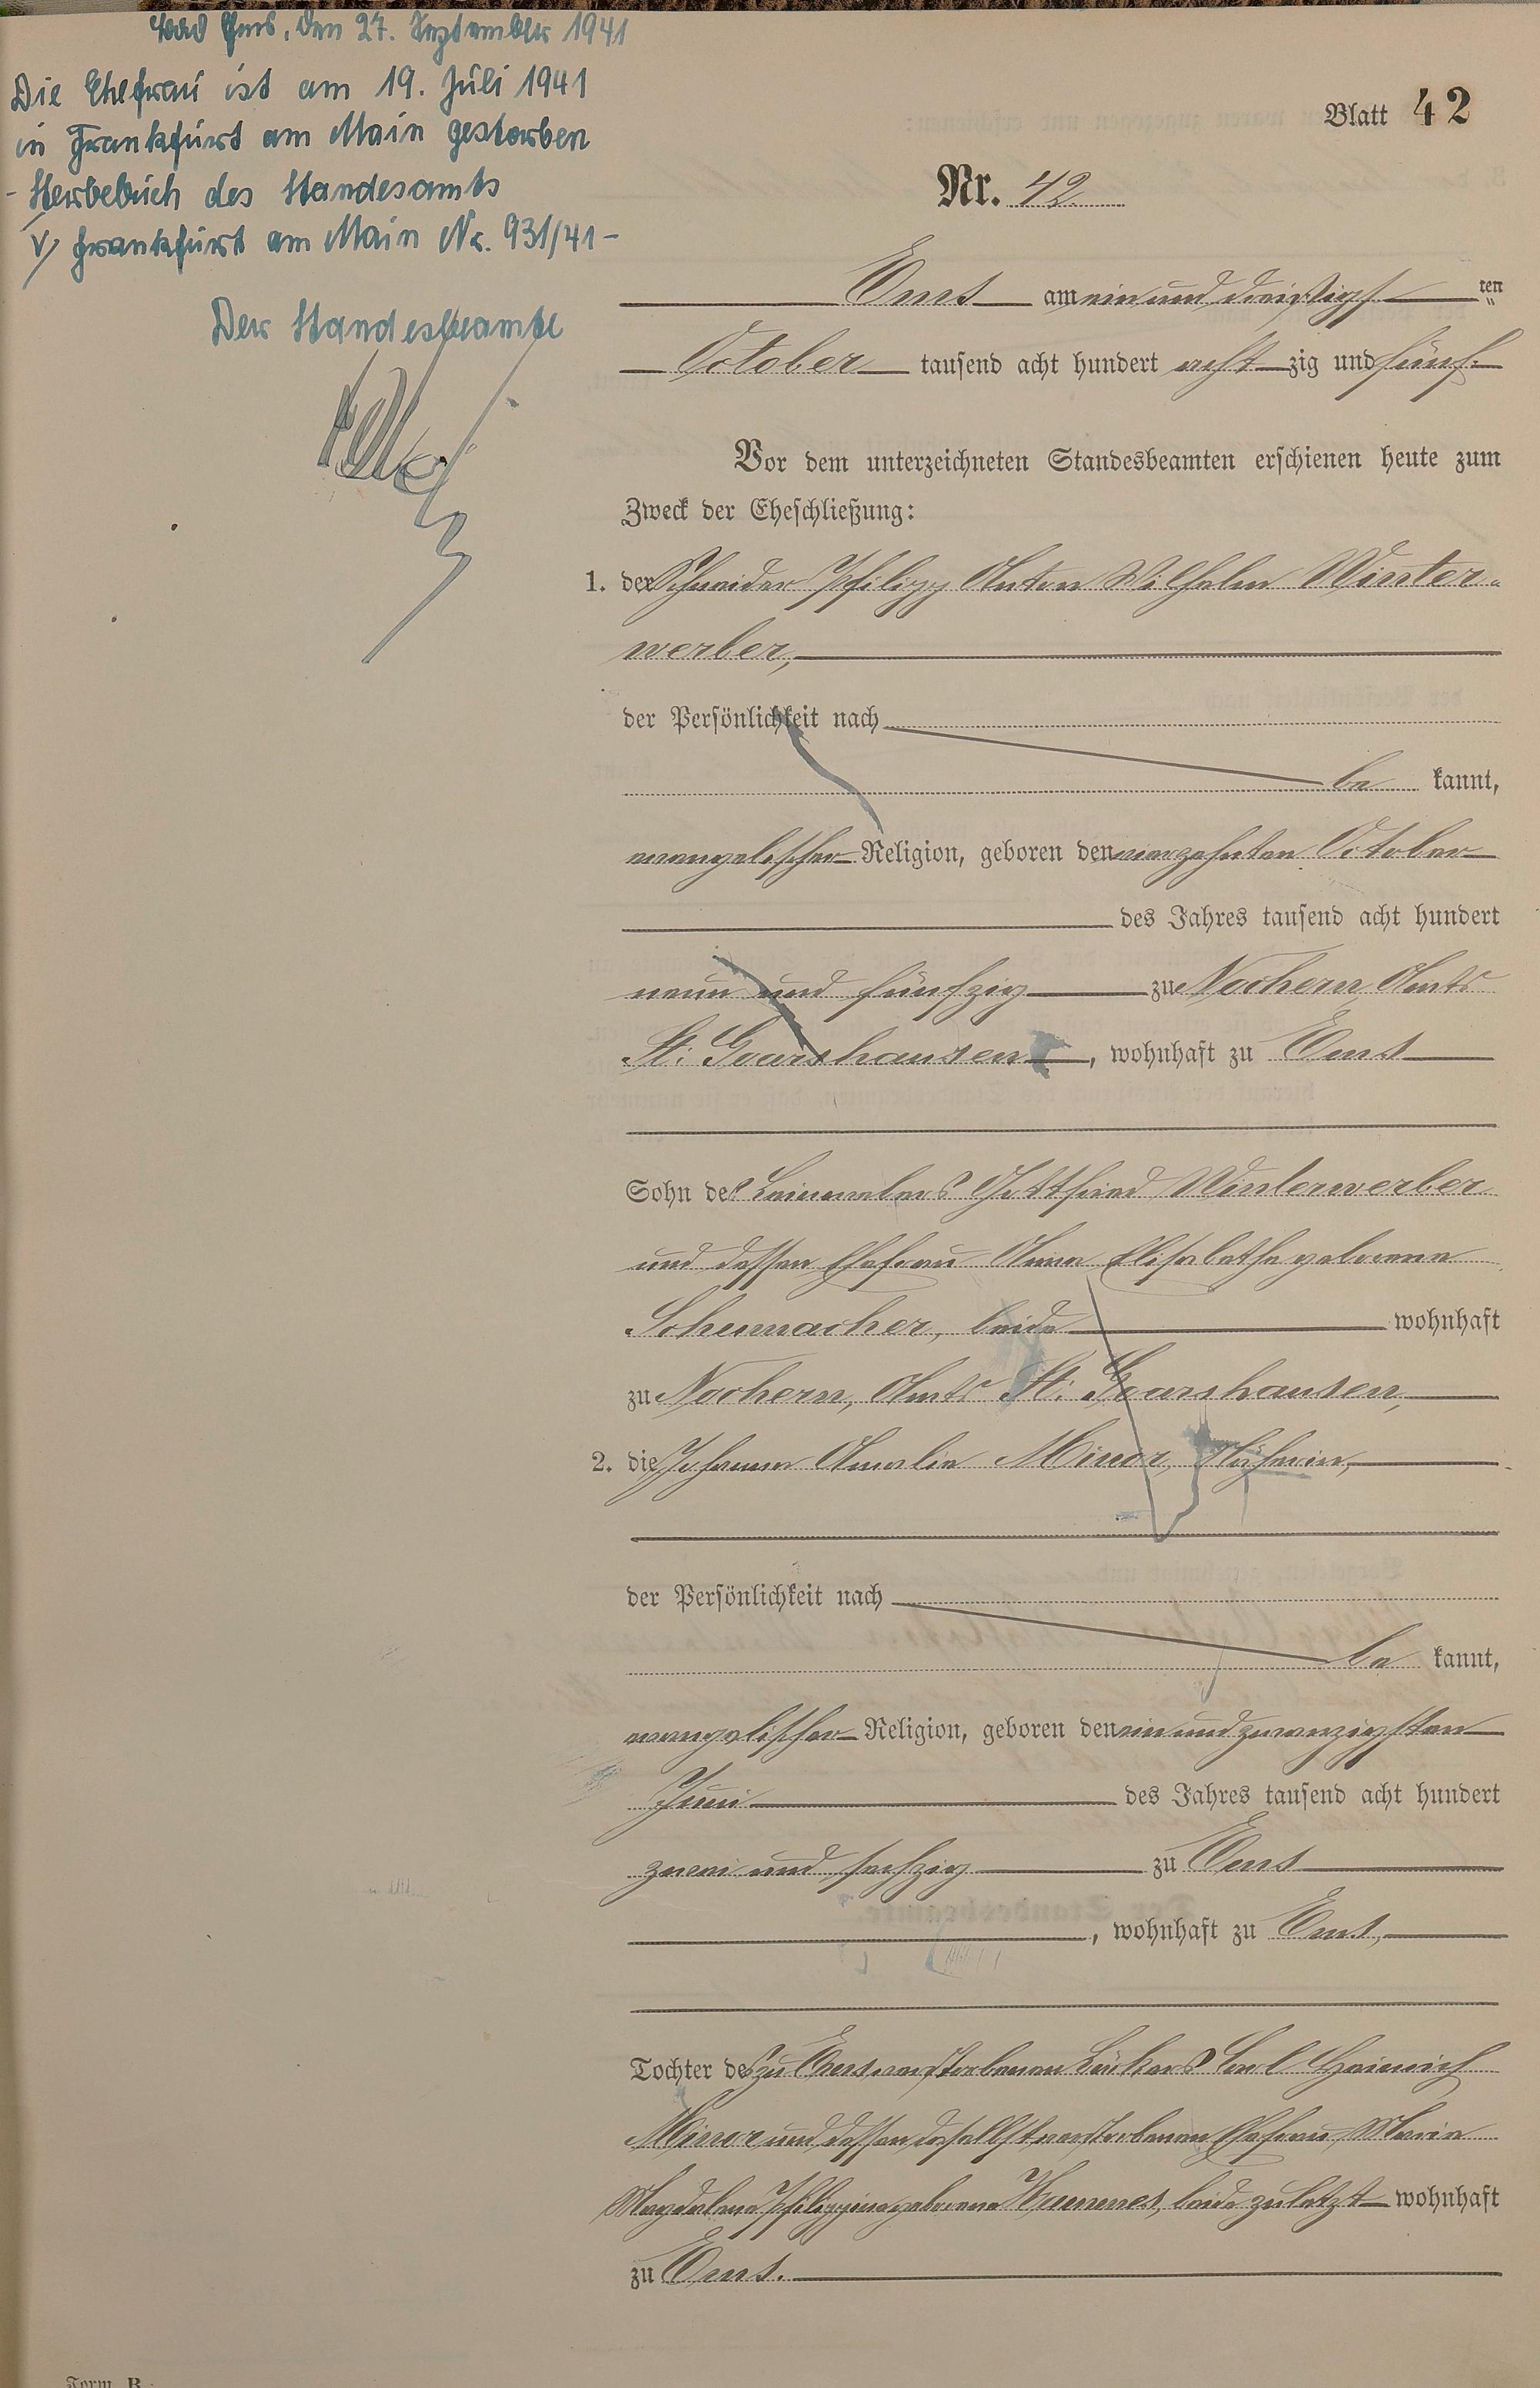 Bad Ems, den 27. September 1941
Die Ehefrau ist am 19. Juli 1941
in Frankfurt am Main gestorben
- Sterbebuch des Standesamts
V/ Frankfurt am Main Nr. 931/41 -
Der Standesbeamte
Blatt 42
Nr. 42.
Ems am ein und dreißigsten
October tausend acht hundert acht zig und fünf.
Vor dem unterzeichneten Standesbeamten erschienen heute zum
Zweck der Eheschließung:
1. der Schneider Philipp Anton Wilhelm Winter-
werber,
der Persönlichkeit nach
be kannt,
evangelischer Religion, geboren den vierzehnten October
des Jahres tausend acht hundert
neun und fünfzig zu Nochern, Amts
St. Goarshausen, wohnhaft zu Ems
Sohn des Leinwebers Gottfried Winterwerber
und dessen Ehefrau Anna Elisabethe geborene
Schumacher, beide wohnhaft
zu Nochern, Amts St. Goarshausen,
2. die Johanna Amalia Minor, Näherin,
der Persönlichkeit nach
be kannt,
evangelischer Religion, geboren den ein und zwanzigsten
Juni des Jahres tausend acht hundert
zwei und sechzig zu Ems
, wohnhaft zu Ems,
Tochter des zu Ems verstorbenen Bäckers Carl Heinrich
Minor und dessen daselbst verstorbenen Ehefrau, Maria
Magdalena Philippina geborene Hammes, beide zuletzt wohnhaft
zu Ems.
Form. B.